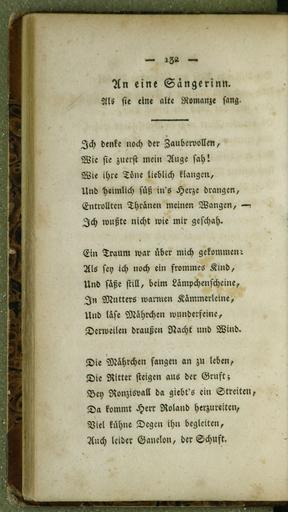 — 132 —
An eine Sängerinn.
Als sie eine alte Romanze sang.
Ich denke noch der Zaubervollen,
Wie sie zuerst mein Auge sah!
Wie ihre Töne lieblich klangen,
Und heimlich süß in's Herze drangen,
Entrollten Thränen meinen Wangen, —
Ich wußte nicht wie mir geschah.
Ein Traum war über mich gekommen:
Als sey ich noch ein frommes Kind,
Und säße still, beim Lämpchenscheine,
In Mutters warmen Kämmerleine,
Und läse Mährchen wunderfeine,
Derweilen draußen Nacht und Wind.
Die Mährchen fangen an zu leben,
Die Ritter steigen aus der Gruft;
Bey Ronzisvall da giebt's ein Streiten,
Da kommt Herr Roland herzureiten,
Viel kühne Degen ihn begleiten,
Auch leider Ganelon, der Schuft.